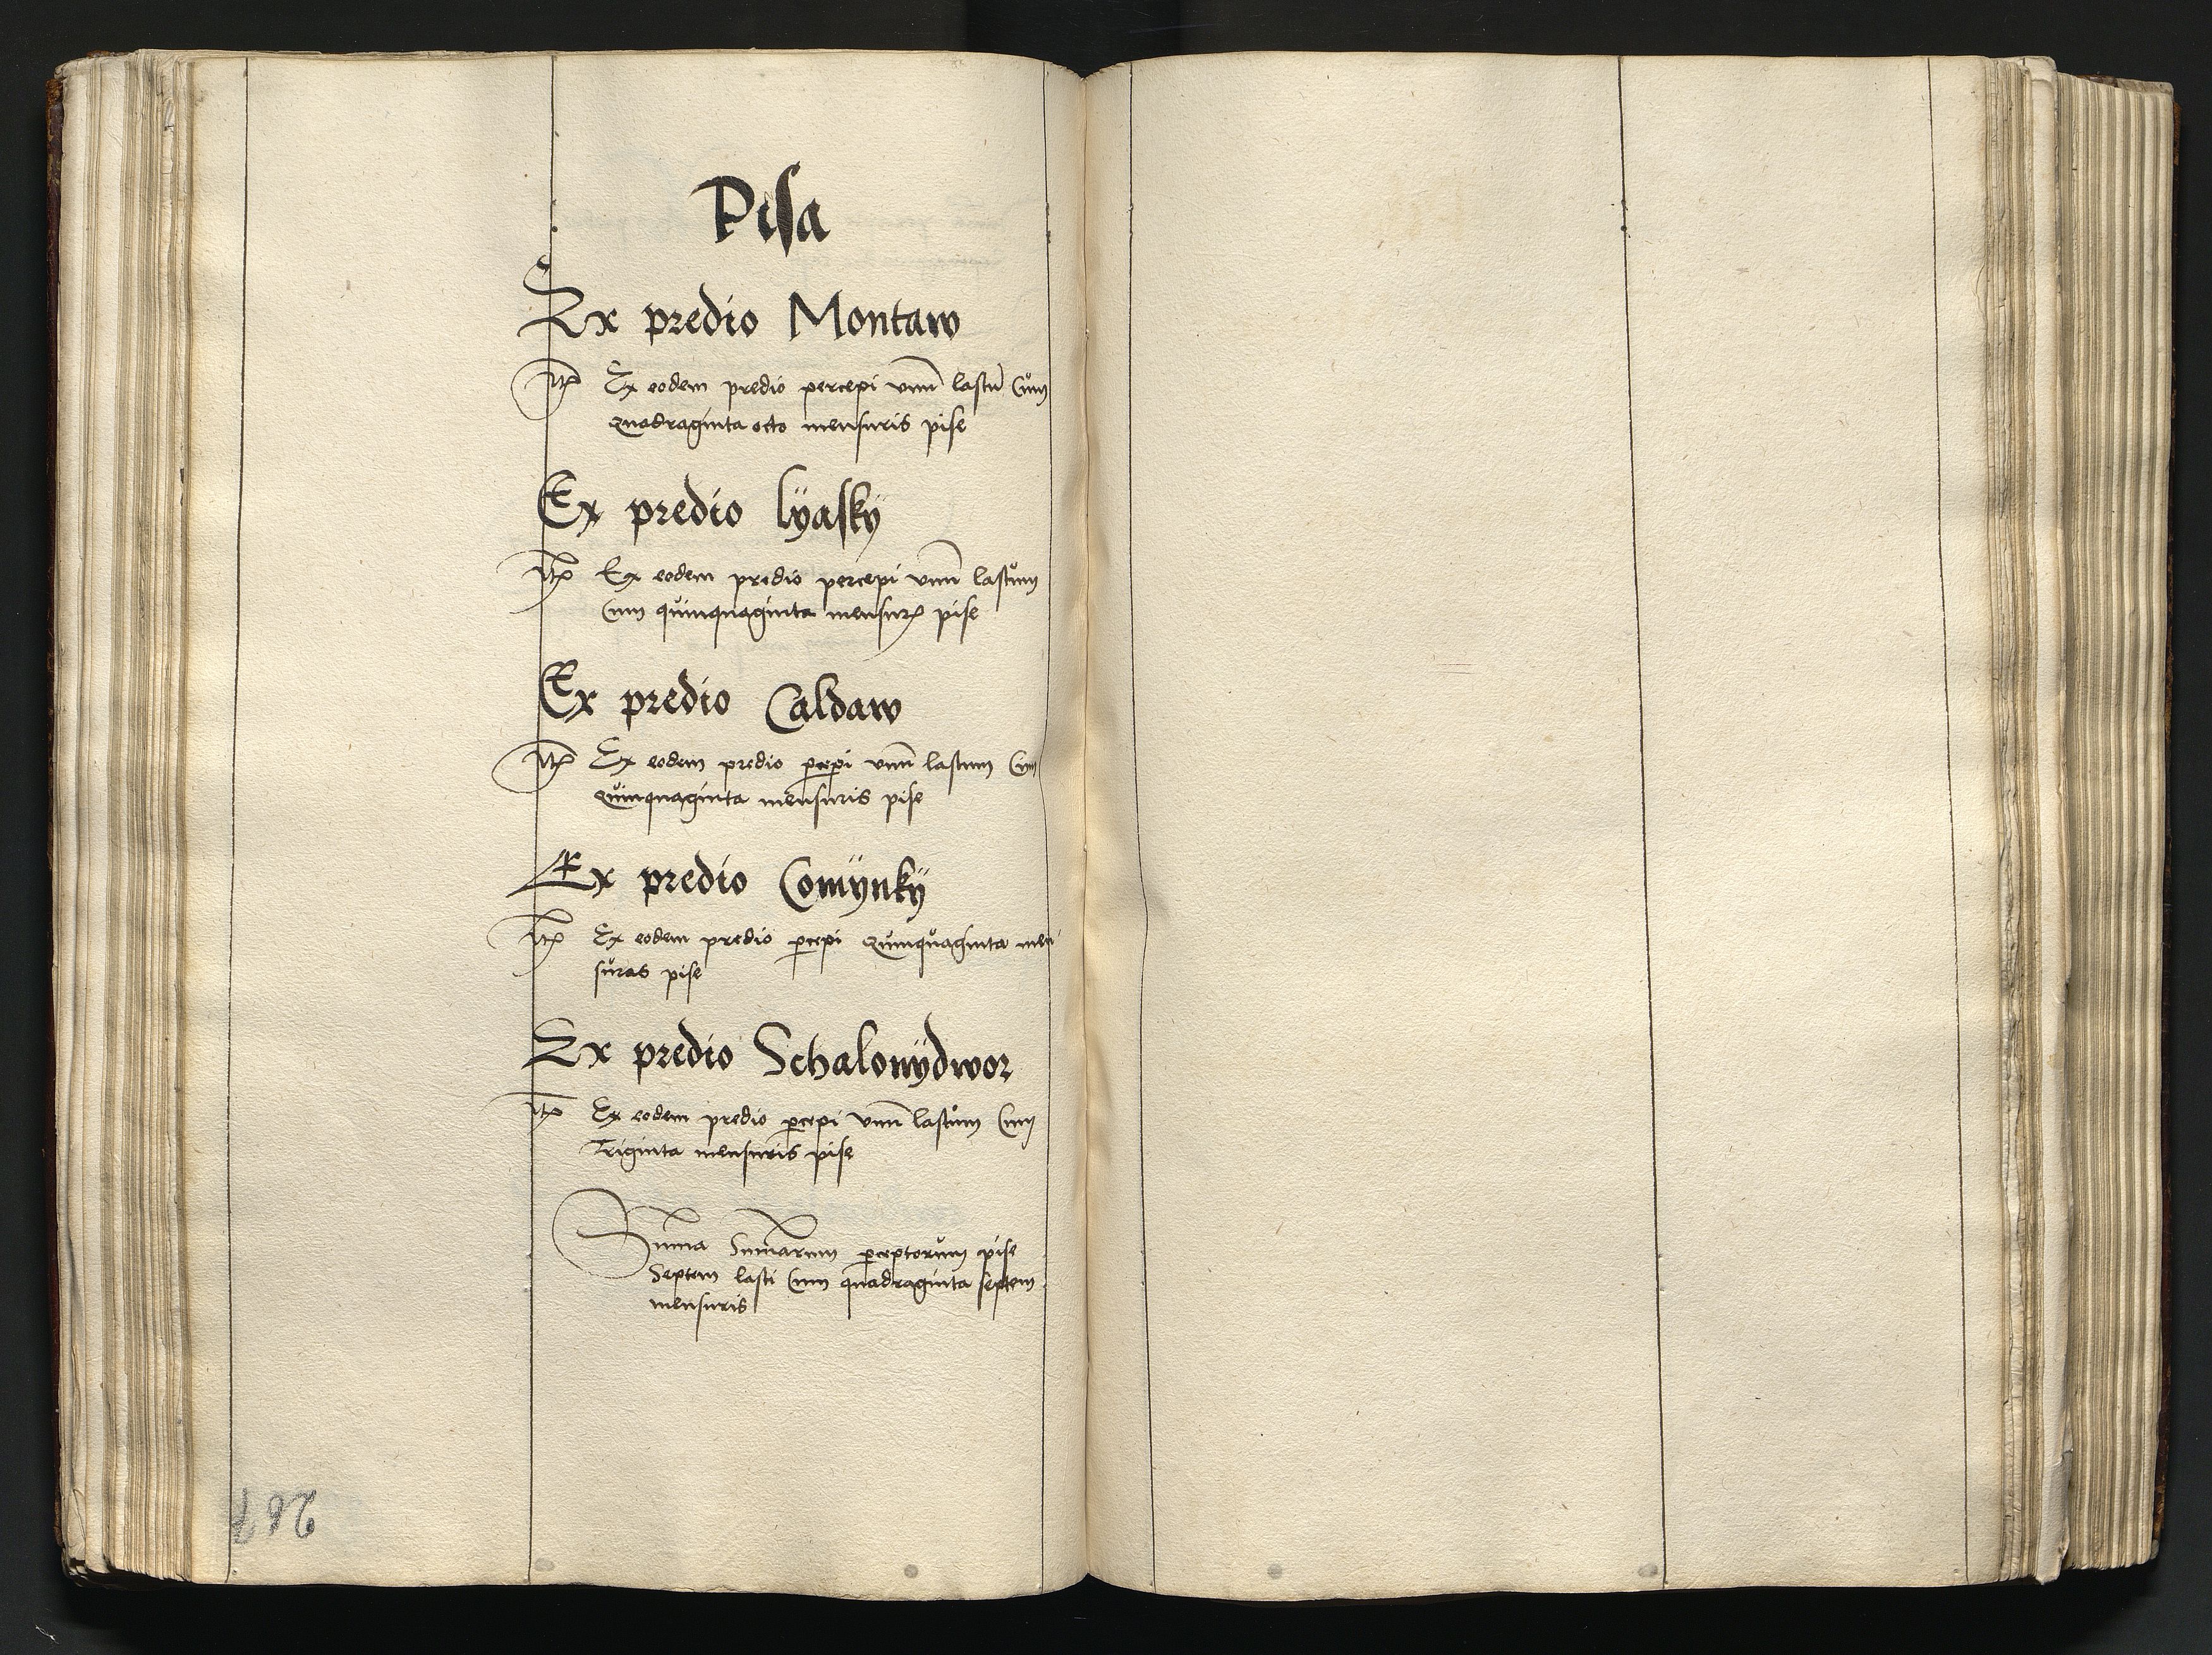 Pisa
Ex predio Montaw
Itꝫ Ex eodem predio percepi vnū lastū Cum
quadraginta octo mensuris pise
Ex predio lÿaskÿ
Itꝫ Ex eodem predio percepi vnū lastum
Cum quinquaginta mensurꝫ pise
Ex predio Caldaw
Itꝫ Ex eodem predio ꝑcepi vnū lastum Cum
quinquaginta mensuris pise
Ex predio Comÿnkÿ
Itꝫ Ex eodem predio ꝑcepi quinquaginta men
suras pise
Ex predio Schalonÿdwor
Itꝫ Ex eodem predio ꝑcepi vnū lastum Cum
Triginta mensuris pise
Sum̄a Sum̄arum ꝑceptorum pise
Septem lasti Cum quadraginta septem
mensuris
267